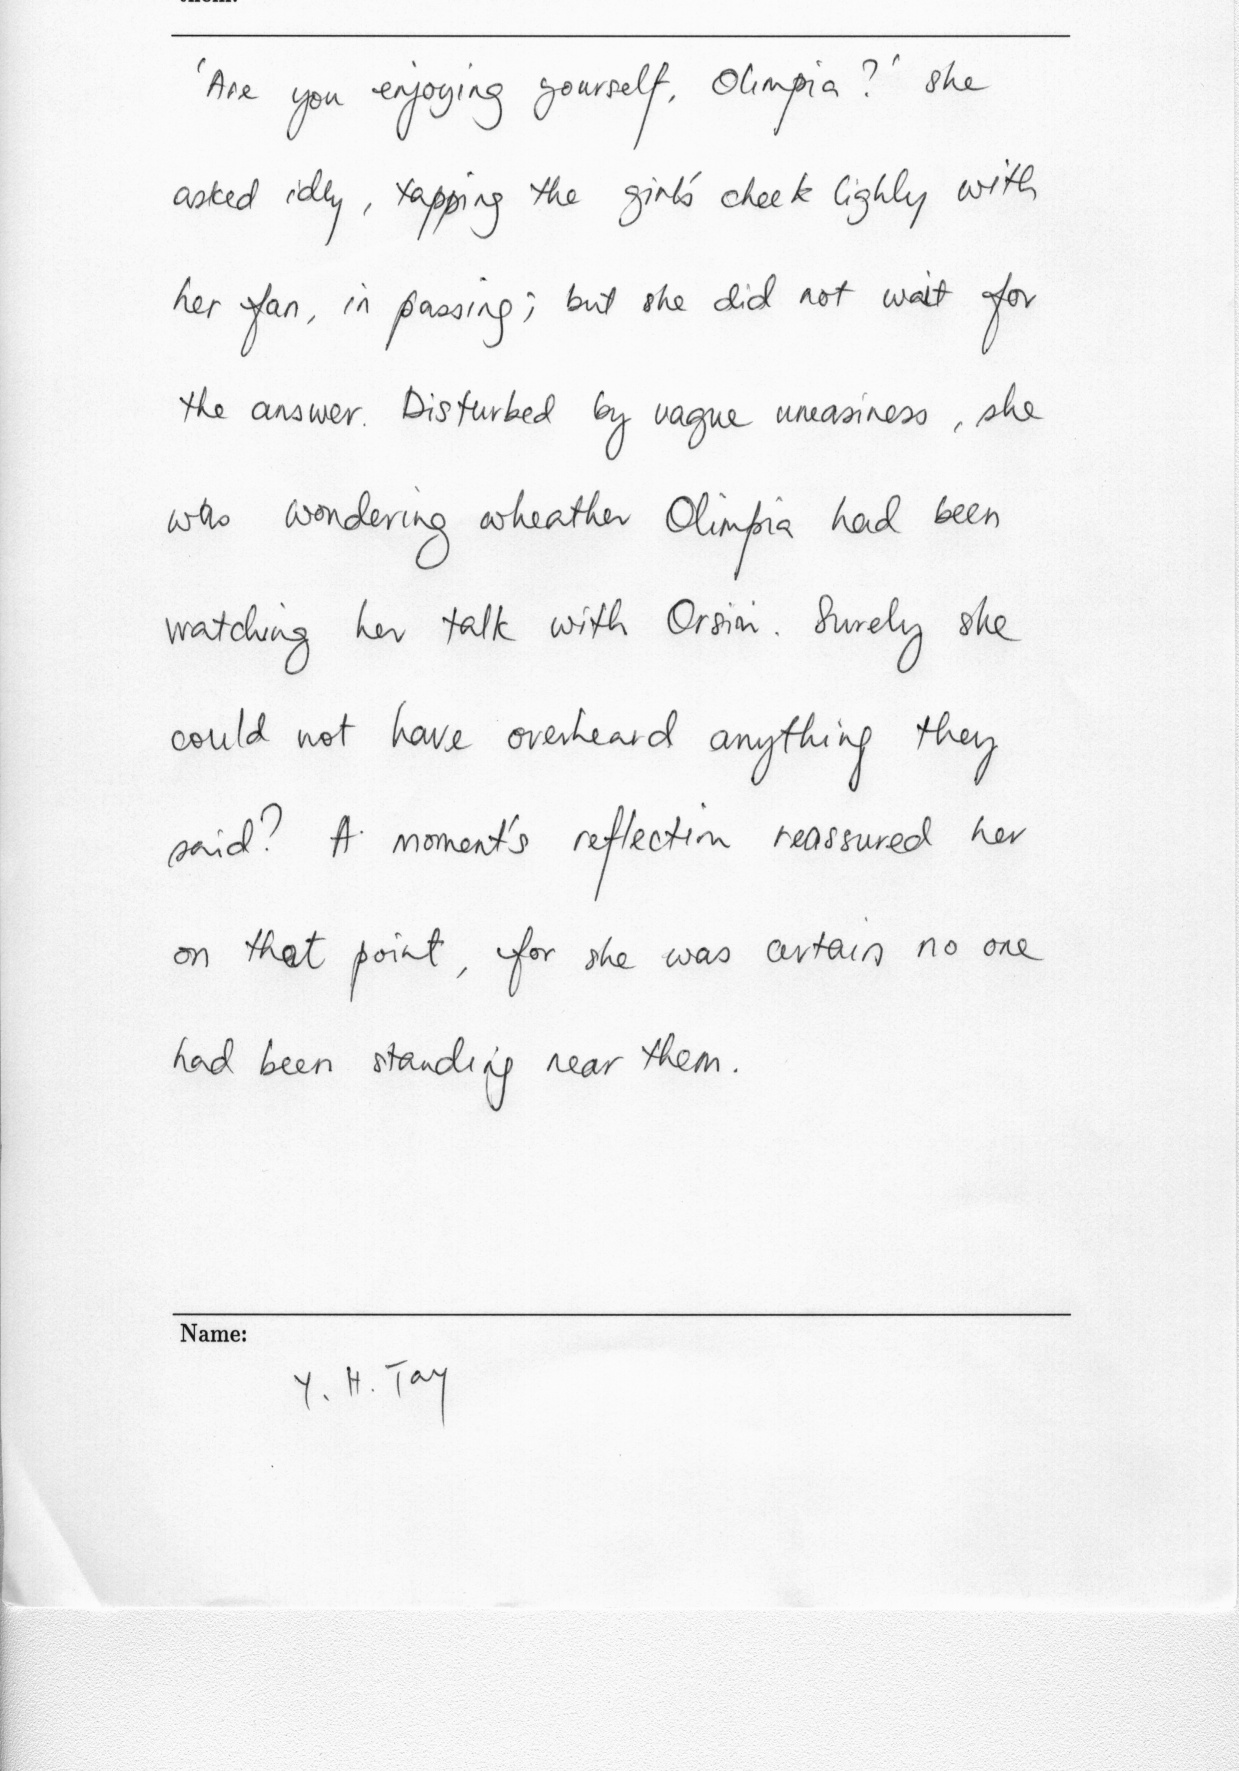 'Are you enjoying yourself, Olimpia?' she
asked idly, tapping the girl's cheek lighly with
her fan, in passing; but she did not wait for
the answer. Disturbed by vague uneasiness, she
was wondering wheather Olimpia had been
watching her talk with Orsini. Surely she
could not have overheard anything they
said? A moment's reflection reassured her
on that point, for she was certain no one
had been standing near them.
Name:
Y. H. Tay